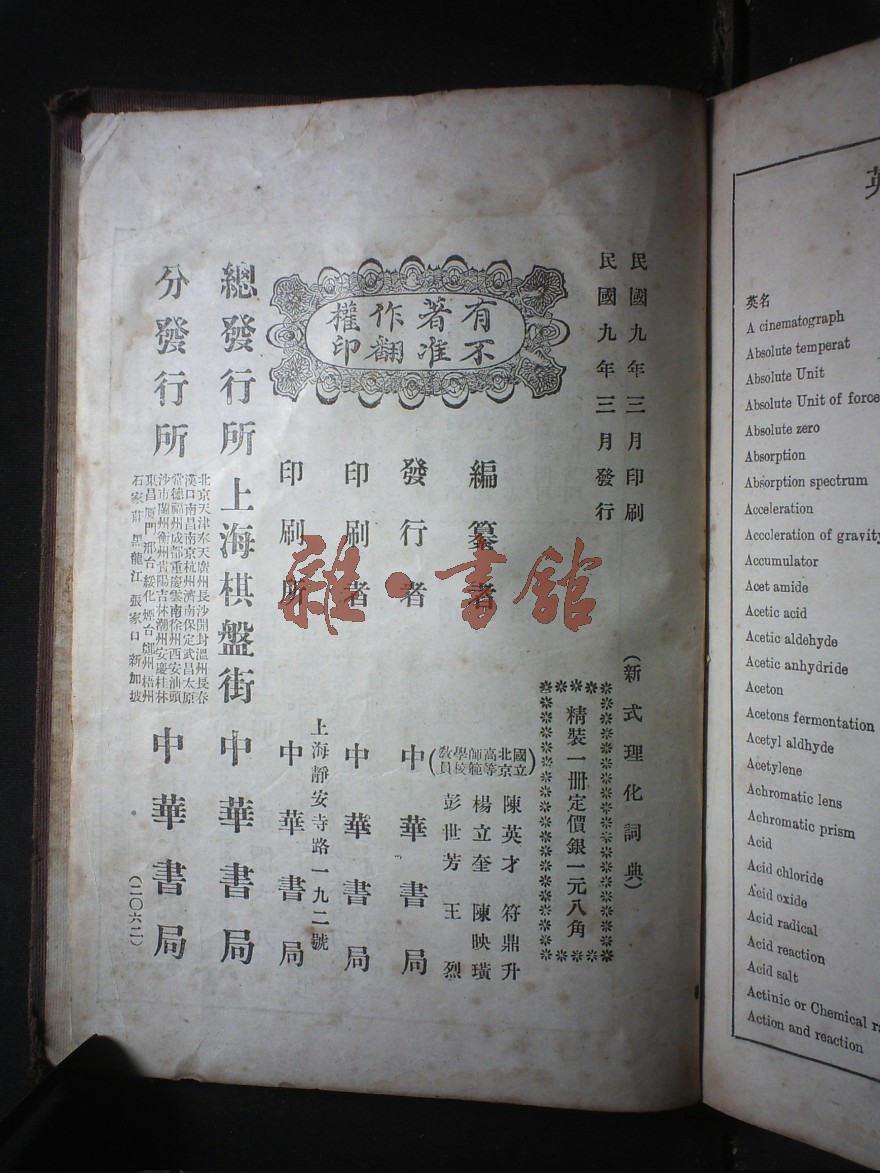 民國九年三月印刷
民國九年三月發行
(新式理化詞典)
精裝一冊定價銀一元八角
有著作權
不准翻印
編纂者
(國立北京高等師範學校教員)
陳英才 符鼎升
楊立奎 陳映璜
彭世芳 王烈
發行者 中華書局
印刷者 中華書局
印刷所 上海靜安寺路一九二號 中華書局
總發行所 上海棋盤街 中華書局
分發行所
北京天津奉天廣州長沙開封溫州長春
漢口南昌南京杭州濟南保定武昌太原
常德福州成都重慶雲南徐州西安汕頭
沙市蘭州衡州貴陽吉林潮州安慶桂林
東昌廈門邢台綏化煙台梧州
石家莊 黑龍江 張家口 新加坡
中華書局
(二〇六二)
雜·書館
英名
A cinematograph
Absolute temperat
Absolute Unit
Absolute Unit of force
Absolute zero
Absorption
Absorption spectrum
Acceleration
Acccleration of gravity
Accumulator
Acet amide
Acetic acid
Acetic aldehyde
Acetic anhydride
Aceton
Acetons fermentation
Acetyl aldhyde
Acetylene
Achromatic lens
Achromatic prism
Acid
Acid chloride
Acid oxide
Acid radical
Acid reaction
Acid salt
Actinic or Chemical ra
Action and reaction